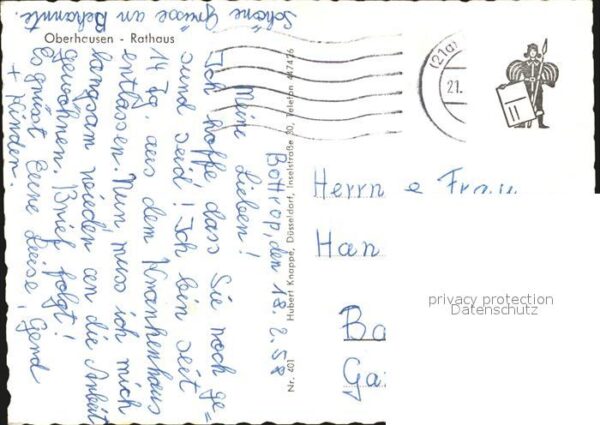 Oberhausen - Rathaus
Bottrop, den 18. 2. 58
Meine Lieben!
Ich hoffe dass Sie noch ge=
sund seid! Ich bin seit
14 Tg. aus dem Krankenhaus
entlassen. Nun muss ich mich
langsam wieder an die Arbeit
gewöhnen. Brief folgt!
Es grüsst Eure Liese, Gerd
+ Kinder.
Schöne Grüsse an Bekannte.
Nr. 401 Hubert Knappe, Düsseldorf, Inselstraße 30, Telefon 447426
(21a)
21.
Herrn e Frau
Han
Ba
Ga
privacy protection
Datenschutz